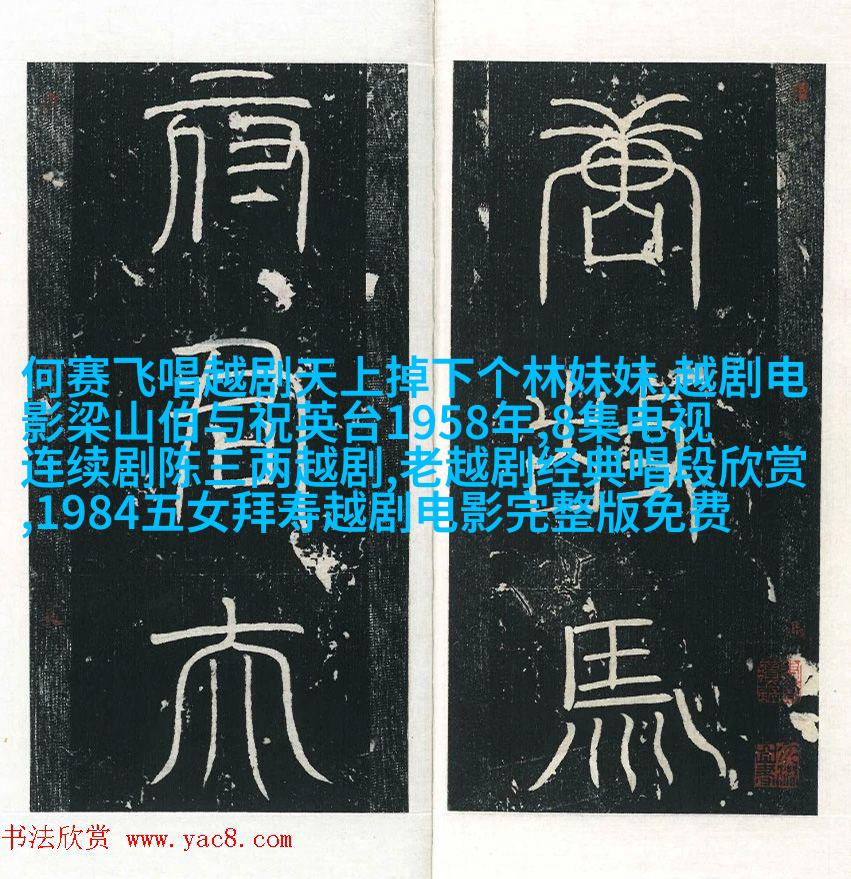 馬
君
大
何赛飞唱越剧天上掉下个林妹妹,越剧电
影梁山伯与祝英台1958年,8集电视
连续剧陈三两越剧,老越剧经典唱段欣赏
,1984五女拜寿越剧电影完整版免费
书法欣赏 www.yac8.com